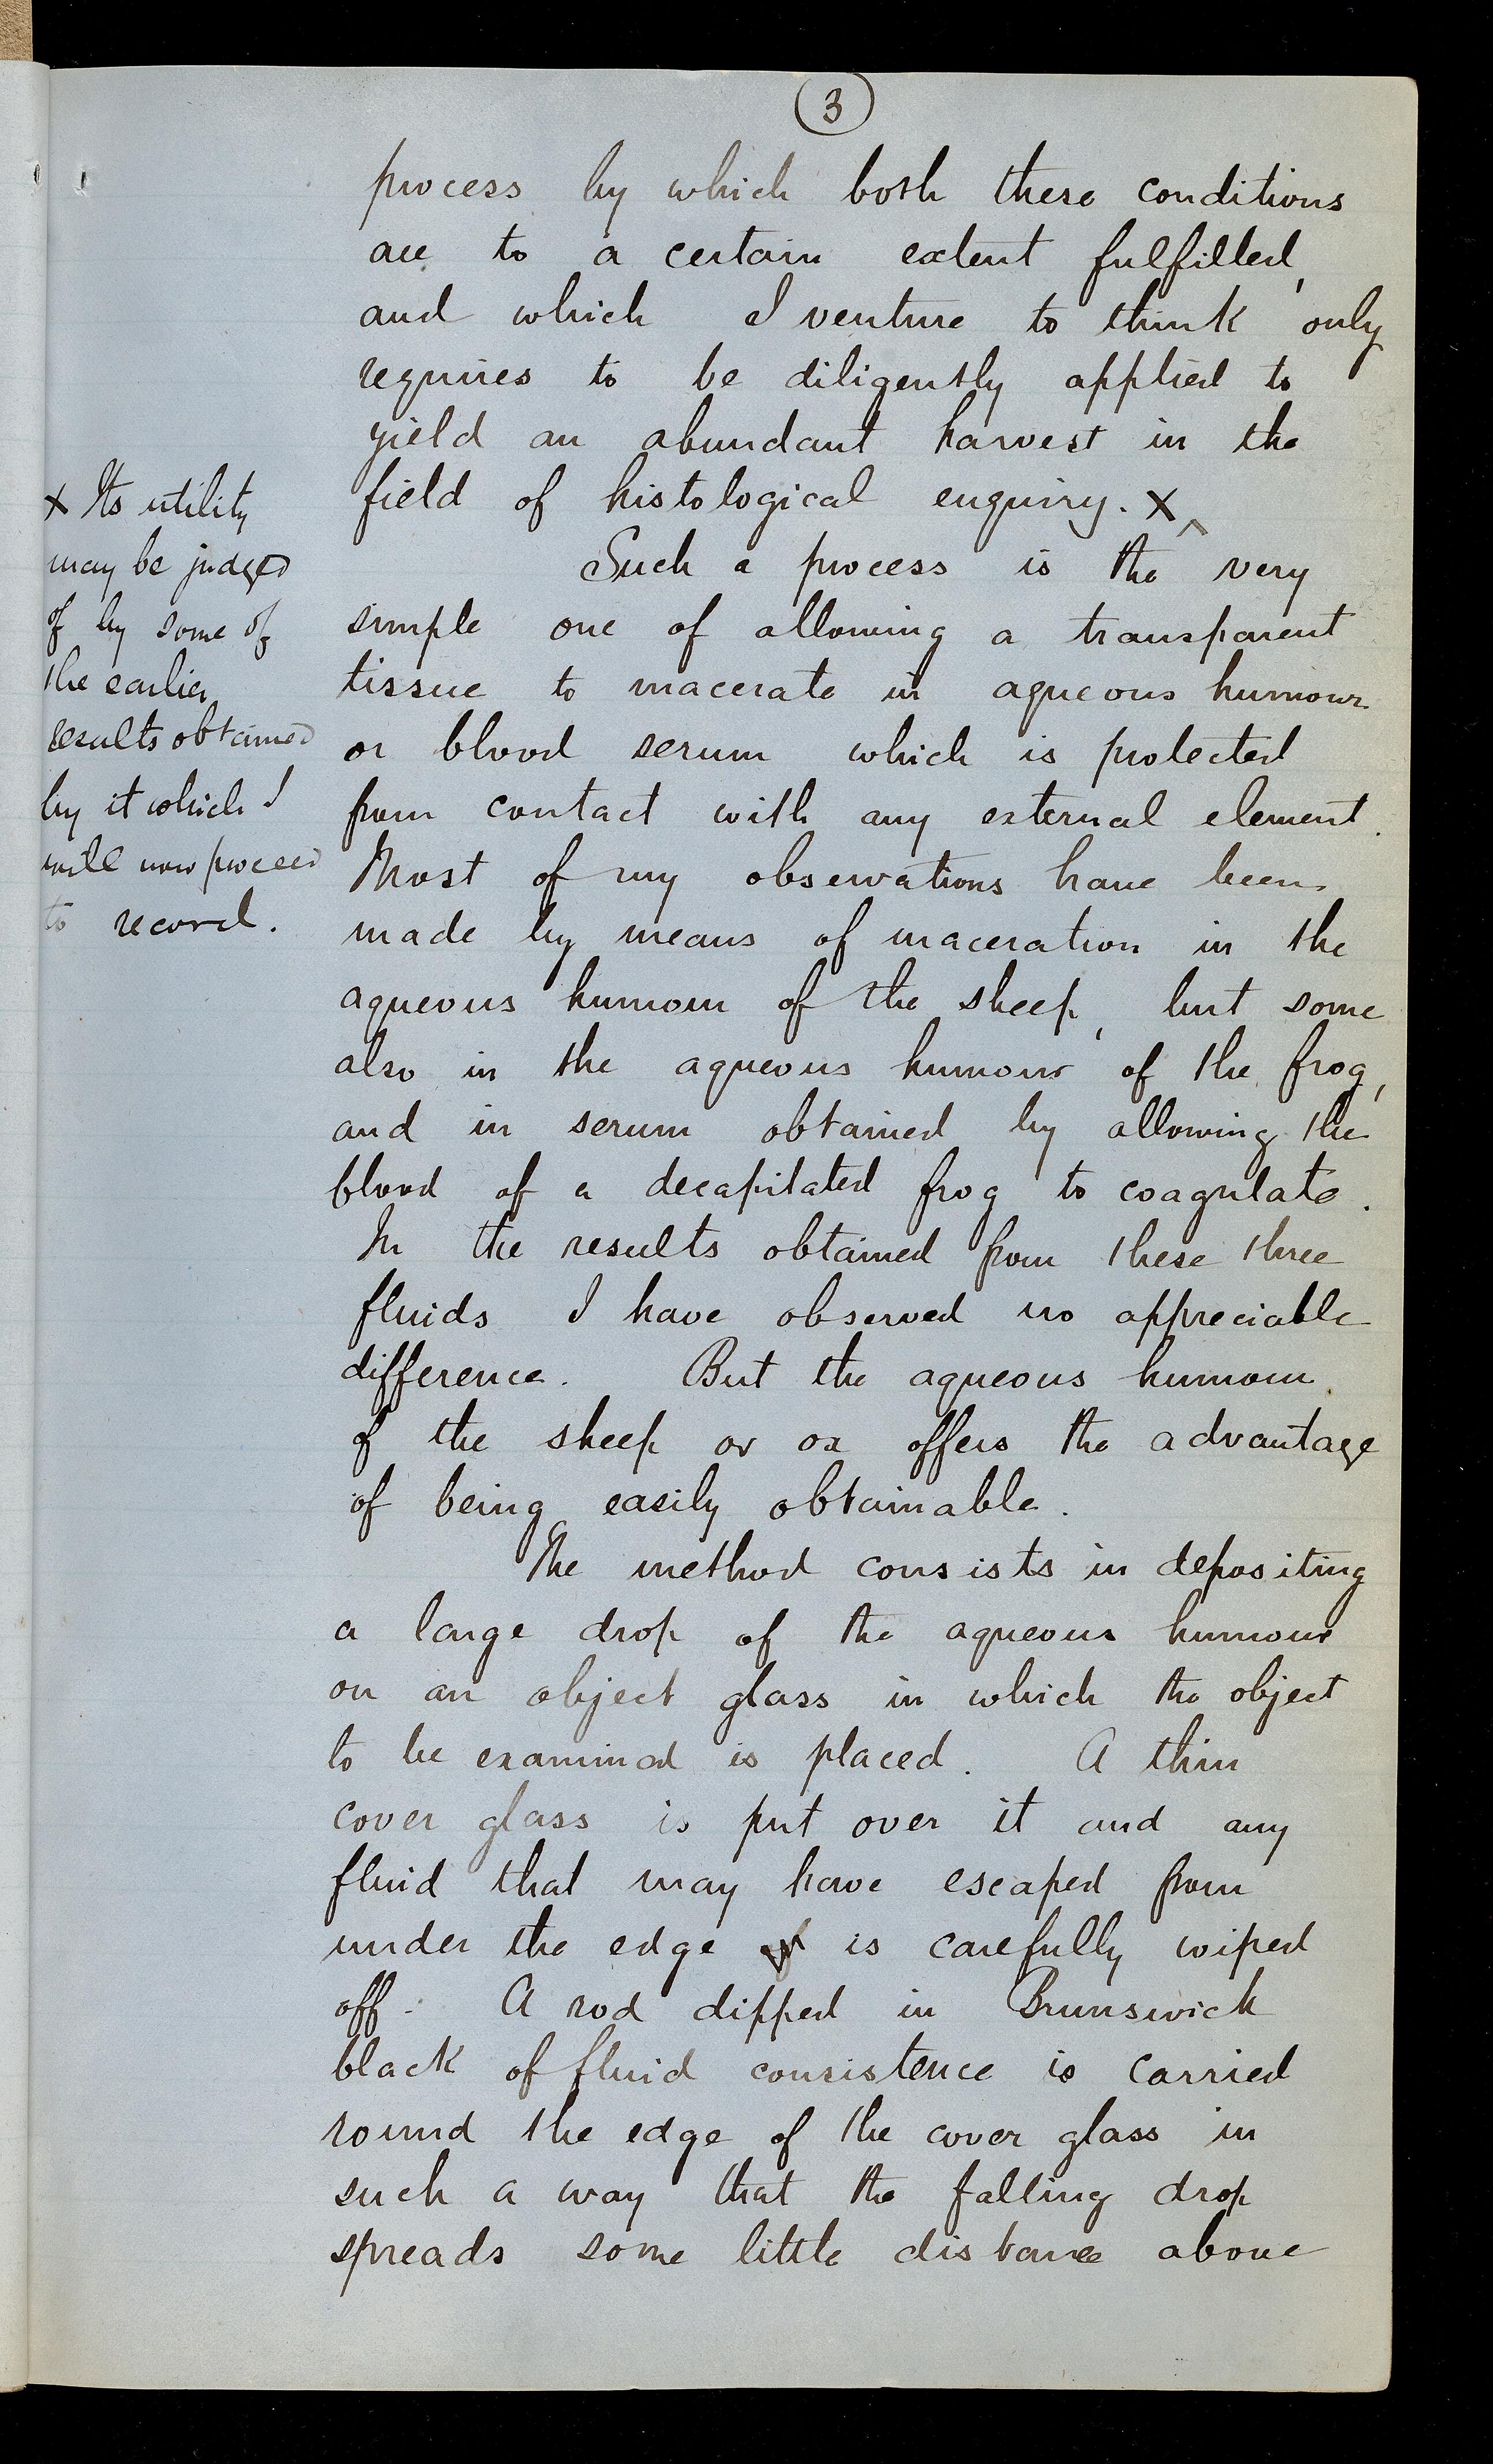 3
process by which both these conditions
are to a certain extent fulfilled,
and which I venture to think only
requires to be diligently applied to
yield an abundant harvest in the
field of histological enquiry. x
x Its utility
may be judged
of by some of
the earlier
results obtained
by it which I
will now proceed
to record.
Such a process is the very
simple one of allowing a transparent
tissue to macerate in aqueous humour
or blood serum which is protected
from contact with any external element.
Most of my observations have been
made by means of maceration in the
aqueous humour of the sheep, but some
also in the aqueous humour of the frog,
and in serum obtained by allowing the
blood of a decapitated frog to coagulate.
In the results obtained from these three
fluids I have observed no appreciable
difference. But the aqueous humour
of the sheep or ox offers the advantage
of being easily obtainable.
The method consists in depositing
a large drop of the aqueous humour
on an object glass in which the object
to be examined is placed. A thin
cover glass is put over it and any
fluid that may have escaped from
under the edge is carefully wiped
off. A rod dipped in Brunswick
black of fluid consistence is carried
round the edge of the cover glass in
such a way that the falling drop
spreads some little distance above